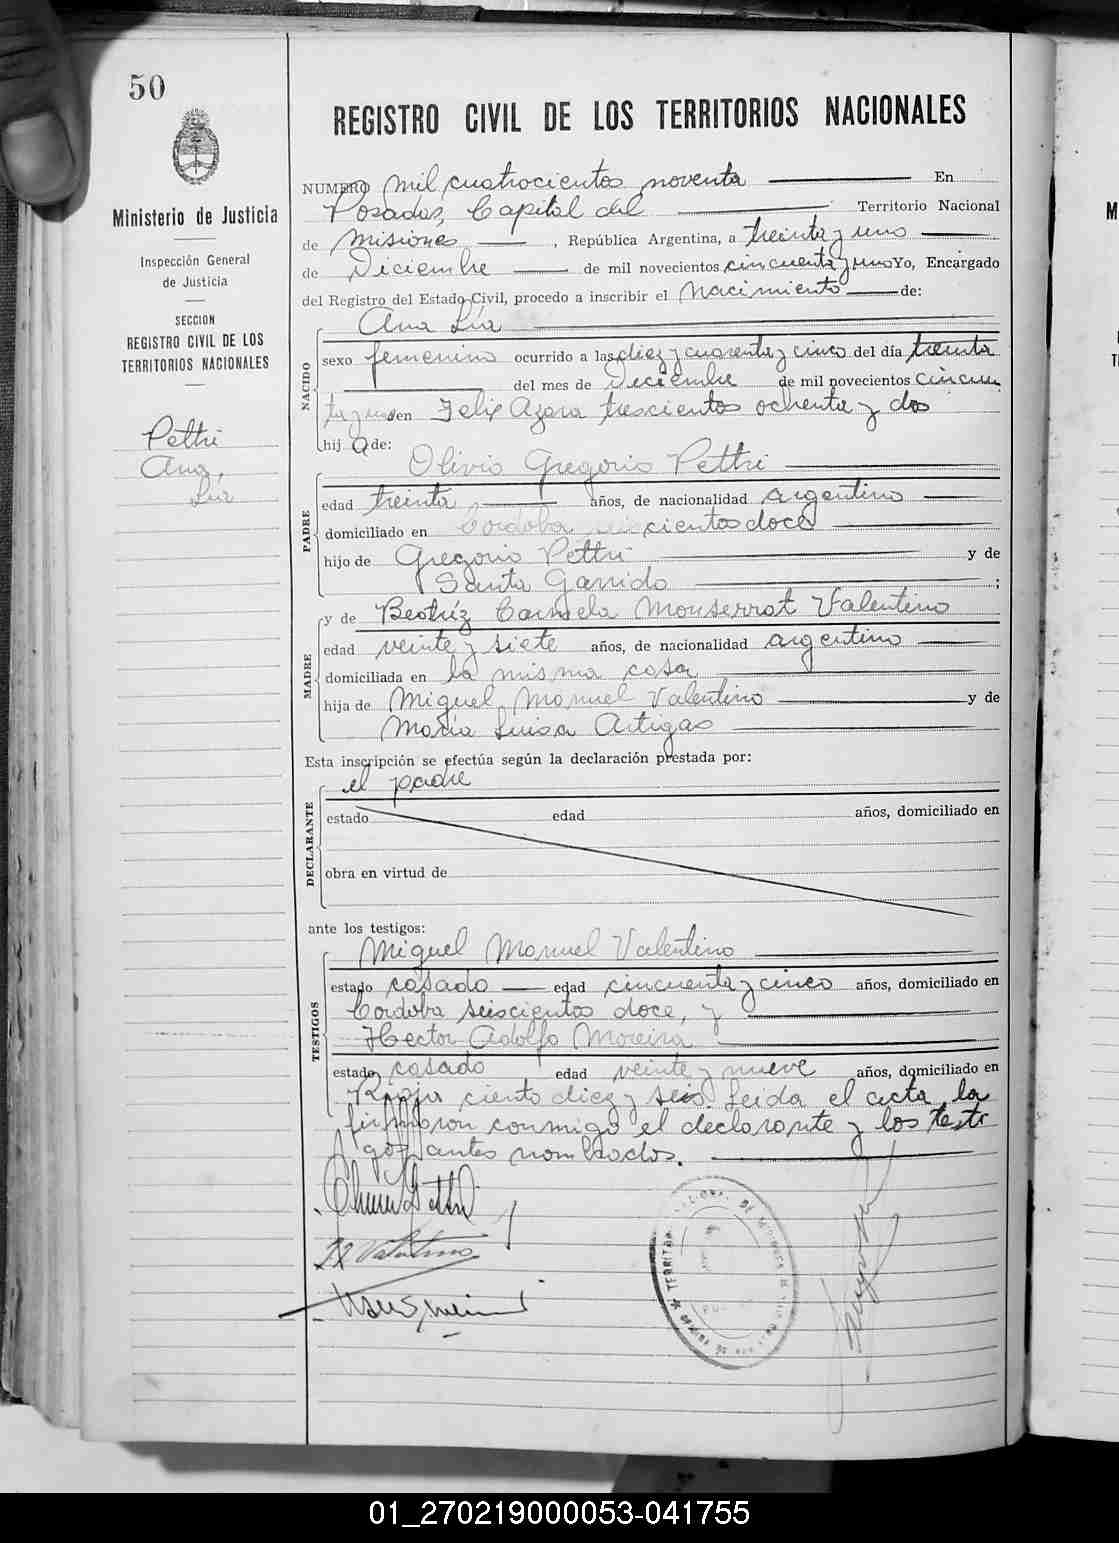 50
REGISTRO CIVIL DE LOS TERRITORIOS NACIONALES
Ministerio de Justicia
Inspección General
de Justicia
SECCION
REGISTRO CIVIL DE LOS
TERRITORIOS NACIONALES
Pettri
Ana,
Lía
NUMERO mil cuatrocientos noventa En
Posadas, Capital del Territorio Nacional
de Misiones, República Argentina, a treinta y uno
de Diciembre de mil novecientos cincuenta y uno Yo, Encargado
del Registro del Estado Civil, procedo a inscribir el Nacimiento de:
NACIDO
Ana Lía
sexo femenino ocurrido a las diez y cuarenta y cinco del día treinta
del mes de Diciembre de mil novecientos cincuen
ta y uno en Felix Azara trescientos ochenta y dos
hij a de:
PADRE
Olivio Gregorio Pettri
edad treinta años, de nacionalidad argentino
domiciliado en Cordoba seiscientos doce
hijo de Gregorio Pettri y de
Santa Garrido ;
MADRE
y de Beatríz Carmela Monserrat Valentino
edad veinte y siete años, de nacionalidad argentino
domiciliada en la misma casa
hija de Miguel Manuel Valentino y de
María Luisa Artigas
Esta inscripción se efectúa según la declaración prestada por:
DECLARANTE
el padre
estado edad años, domiciliado en
obra en virtud de
ante los testigos:
TESTIGOS
Miguel Manuel Valentino
estado casado edad cincuenta y cinco años, domiciliado en
Cordoba seiscientos doce, y
Hector Adolfo Moreira
estado casado edad veinte y nueve años, domiciliado en
Rioja ciento diez y seis. Leida el acta, la
firmaron conmigo el declarante y los testi
gos antes nombrados.
Valentino
M
01_270219000053-041755